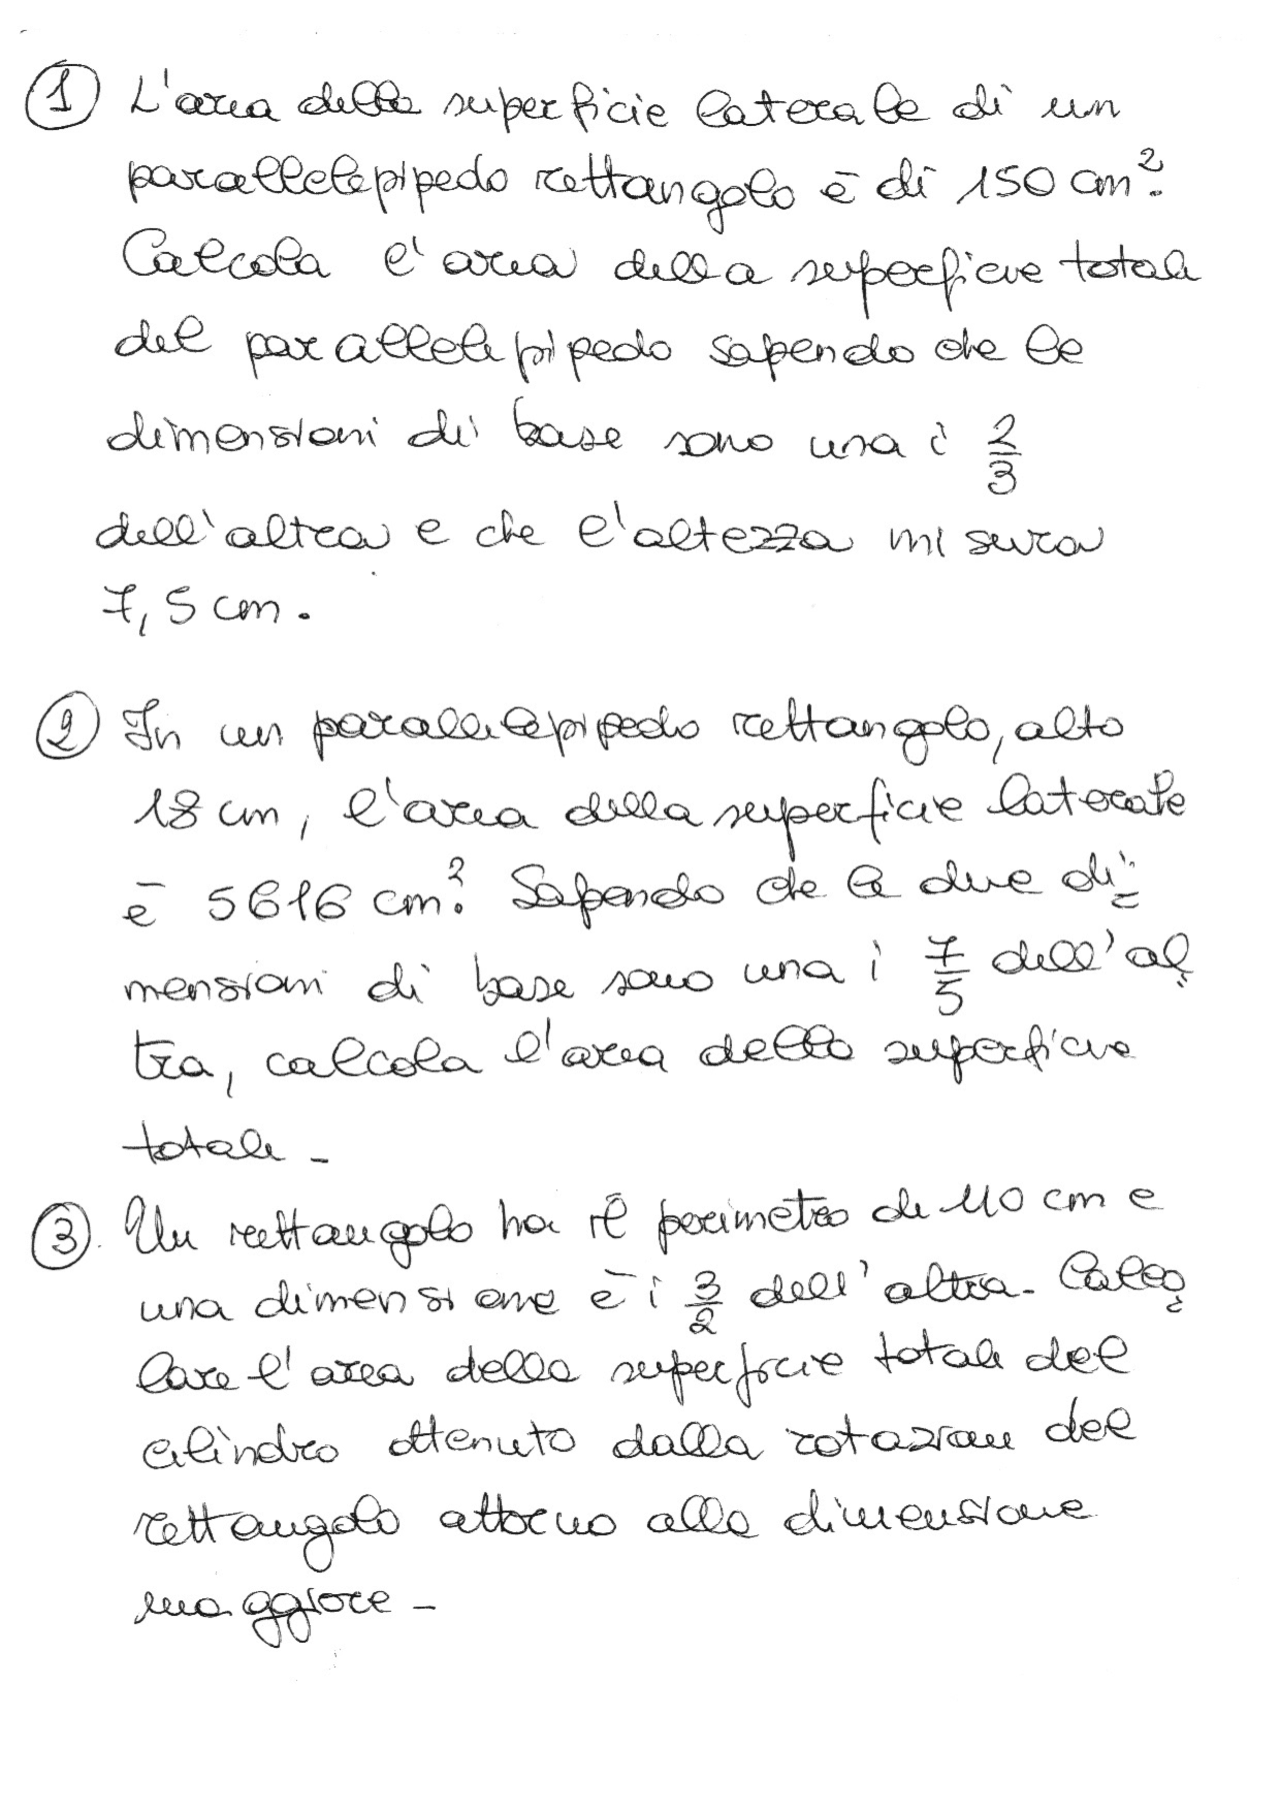 ① L'area della superficie laterale di un
parallelepipedo rettangolo è di 150 cm².
Calcola l'area della superficie totale
del parallelepipedo sapendo che le
dimensioni di base sono una i 2/3
dell'altra e che l'altezza misura
7,5 cm.
② In un parallelepipedo rettangolo, alto
18 cm, l'area della superficie laterale
è 5616 cm². Sapendo che le due di=
mensioni di base sono una i 7/5 dell'al=
tra, calcola l'area della superficie
totale -
③. Un rettangolo ha il perimetro di 110 cm e
una dimensione è i 3/2 dell'altra. Calco=
lare l'area della superficie totale del
cilindro ottenuto dalla rotazione del
rettangolo attorno alla dimensione
maggiore -